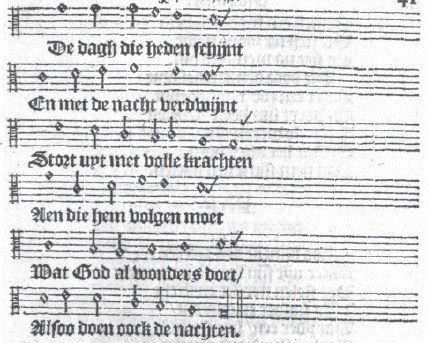 41
De dagh die heden schijnt
En met de nacht verdwijnt
Stort uyt met volle krachten
Aen die hem volgen moet
Wat God al wonders doet/
Alsoo doen oock de nachten.